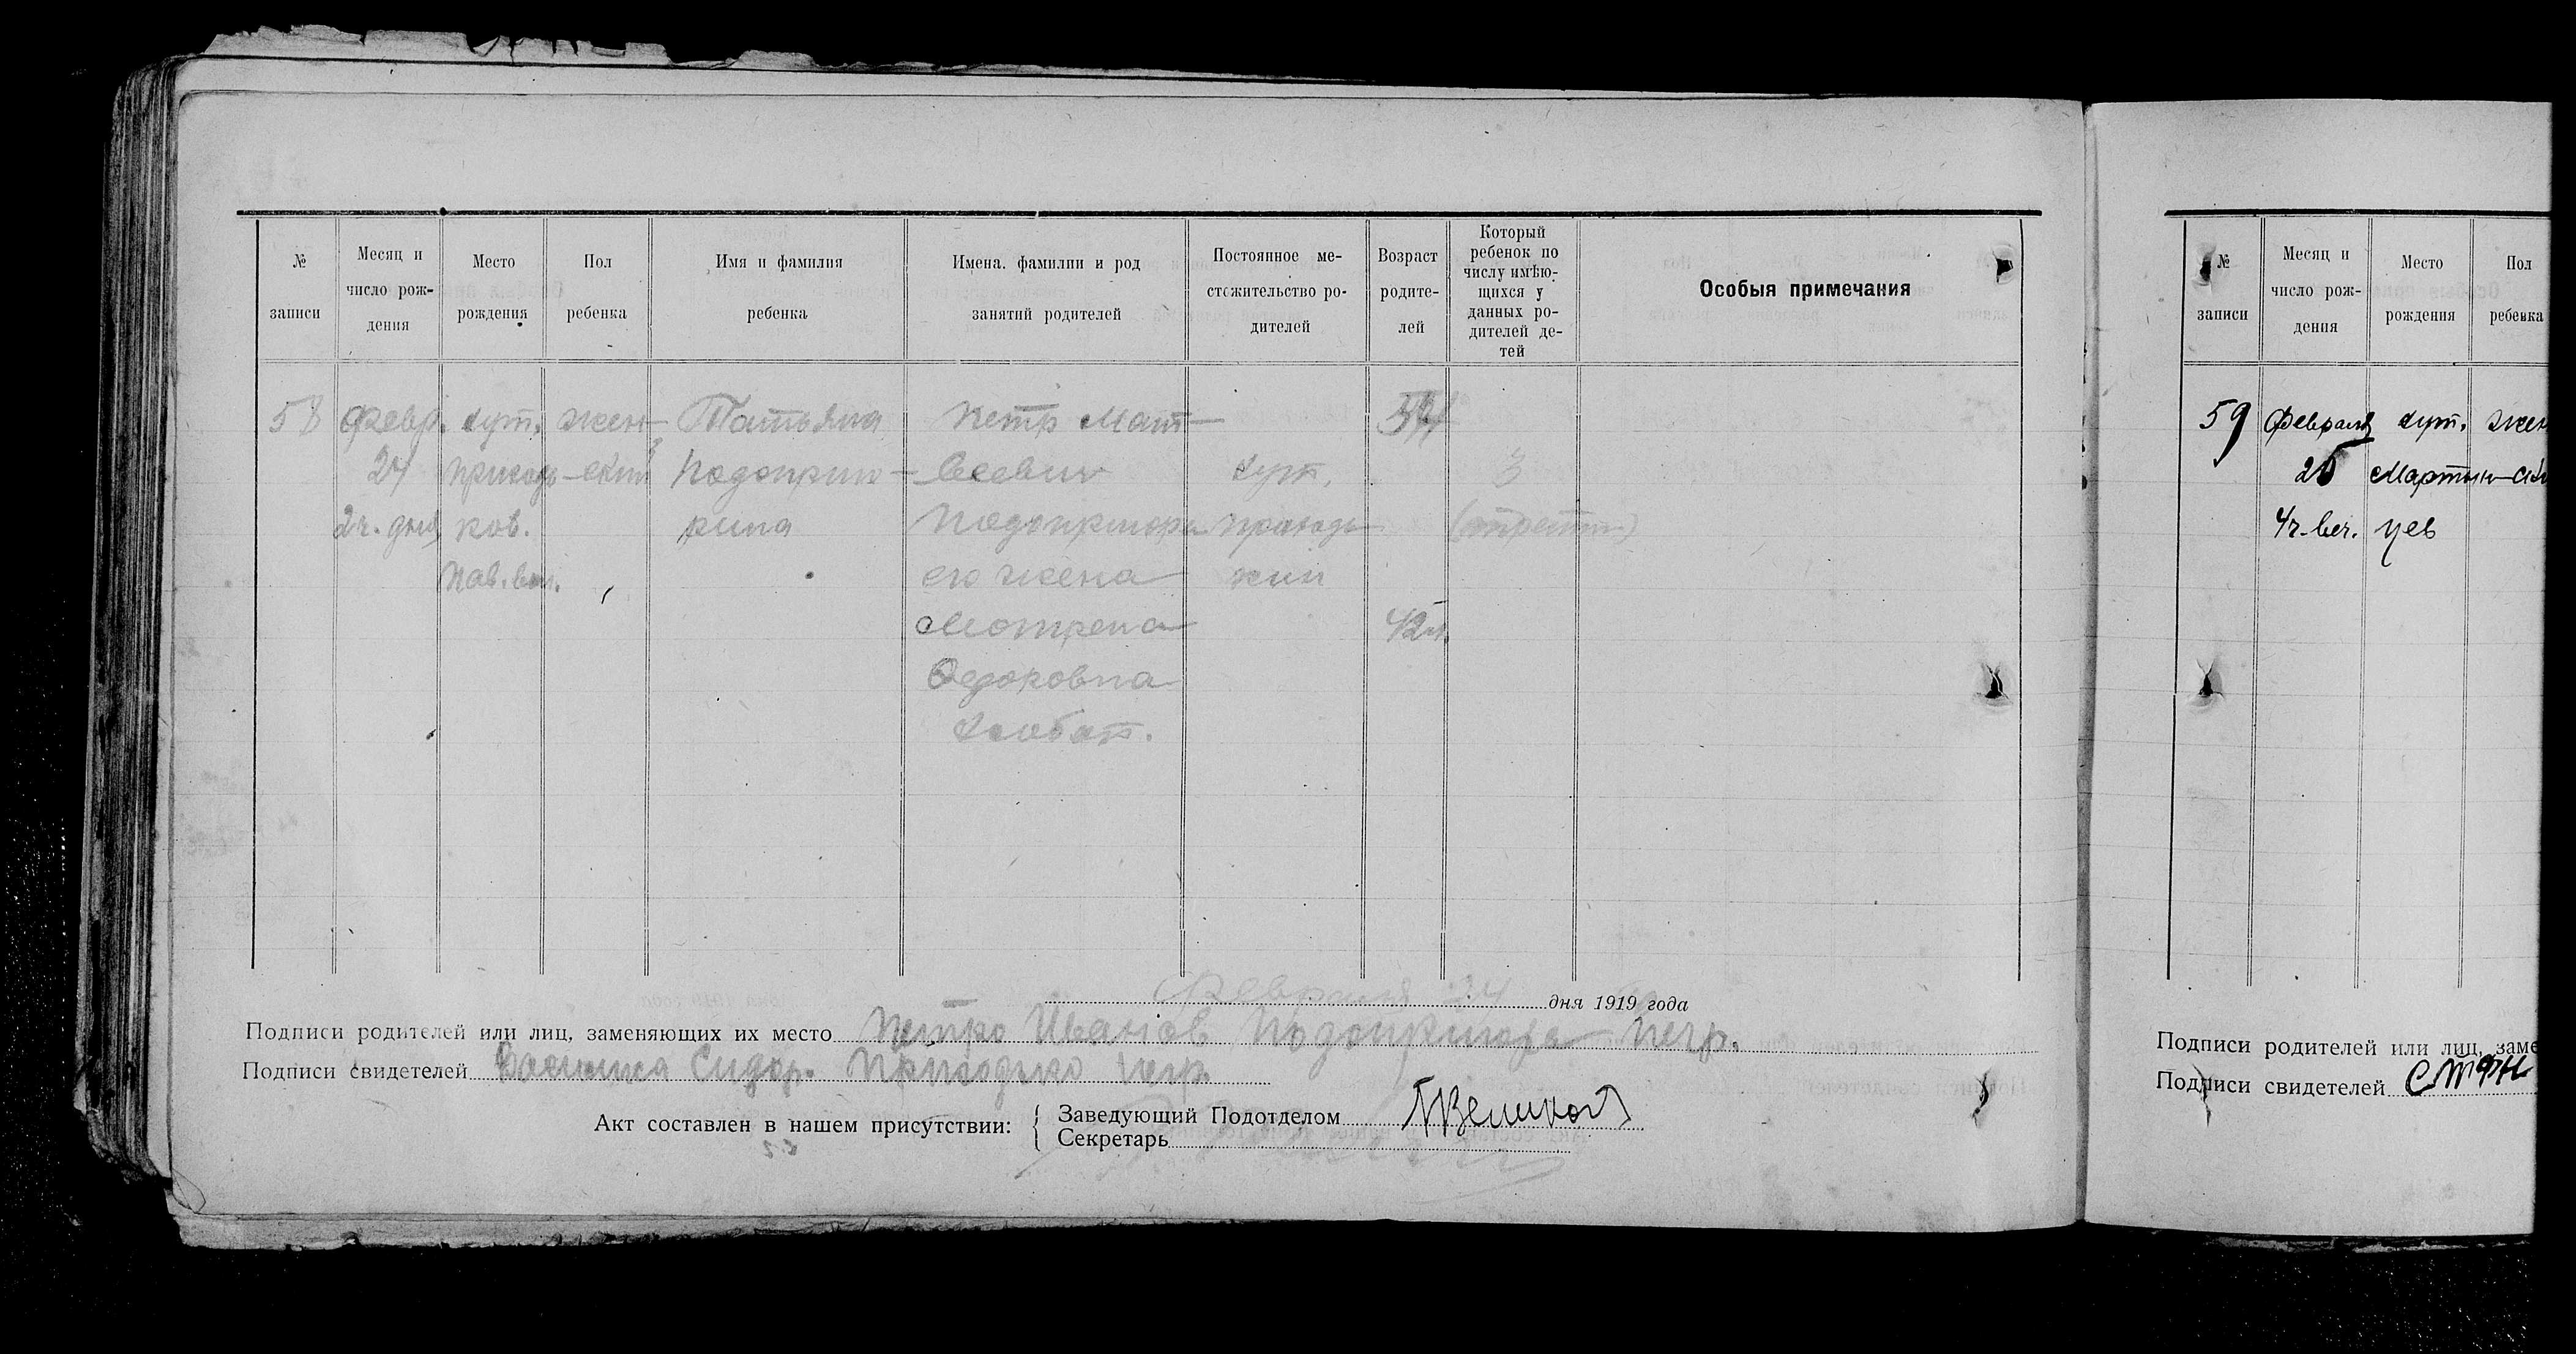 № записи
Месяц и число рождения
Место рождения
Пол ребенка
Имя и фамилия ребенка
Имена, фамилии и род занятий родителей
Постоянное местожительство родителей
Возраст родителей
Который ребенок по числу имѣющихся у данных родителей детей
Особыя примечания
58 Февр. хут. жен- Татьяна Петр Мат-
24 Приходь- ский Подоприго- веевич хут. 3
2 ч. дня ков. рина Подопригора Приходь- (третий)
Пав. вол. его жена кин
Мотрена 42 л.
Федоровна
хлебоп.
Февраля 24 дня 1919 года
Подписи родителей или лиц, заменяющих их место Петро Иванов Подопригора негр.
Подписи свидетелей Сидор. Приходько негр.
Акт составлен в нашем присутствии:
Заведующий Подотделом
Секретарь
№ записи
Месяц и число рождения
Место рождения
Пол ребенка
59 Февраля хут. жен
Мартын-
4 ч. веч. цев
Подписи родителей или лиц, заме
Подписи свидетелей